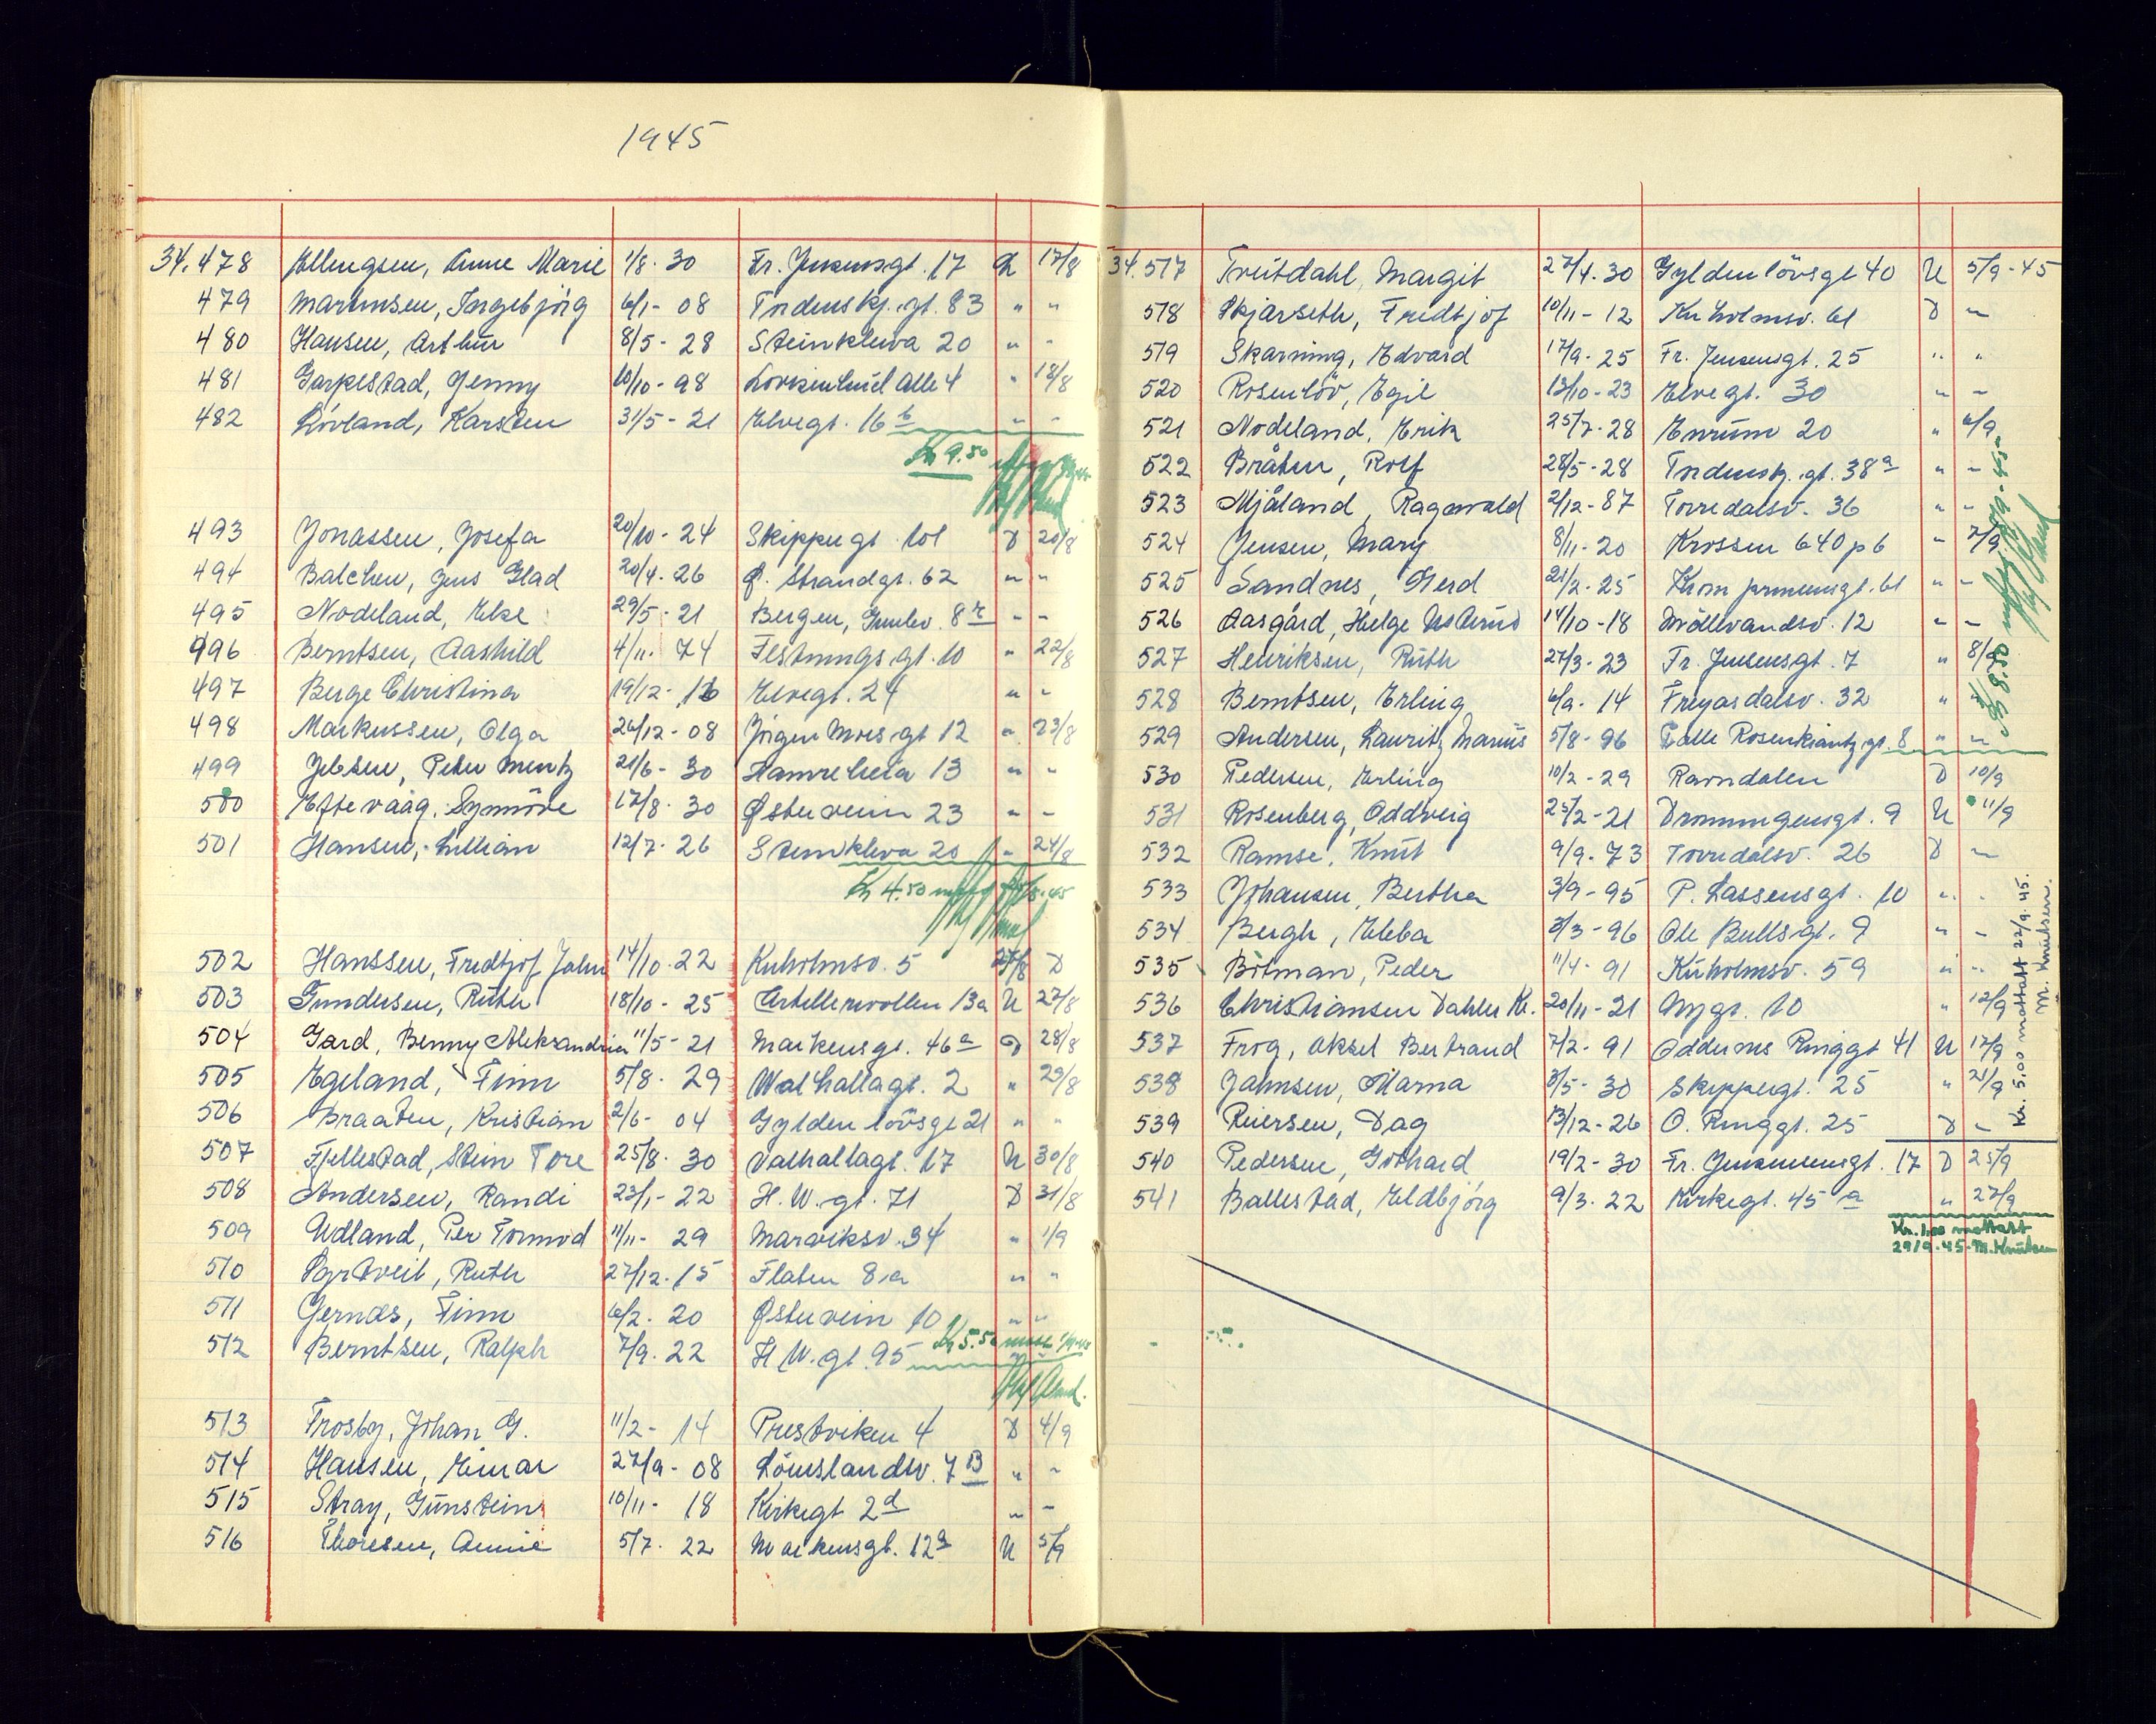 1945
34.478 Ellingsen, Anne Marie 1/8. 30 Fr. Jensensgt. 17 D 17/8
479 Martinsen, Ingebjörg 6/1- 08 Tordenskj. gt. 83 " "
480 Hansen, Arthur 8/5- 28 Steinkleiva 20 " "
481 Garpestad, Jenny 10/10- 98 Lovisenlund Alle 4 " 18/8
482 Lövland, Karsten 31/5- 21 Elvegt. 16 b " "
Kr 9.50
493 Jonassen, Josefa 20/10- 24 Skippergt. 101 D 20/8
494 Balchen, Jens Glad 20/4. 26 Ø. Strandgt. 62 " "
495 Nodeland, Else 29/5- 21 Bergen, " "
496 Berntsen, Aashild 4/11. 74 Festningsgt. 10 " 22/8
497 Berge Christina 19/12- 16 Elvegt. 24 " "
498 Markussen, Olga 26/12- 08 Jörgen Moes gt 12 " 23/8
499 Jebsen, Peter Mentz 21/6- 30 Hamreheia 13 " "
500 Eftevaag, Synnöve 17/8. 30 Østerveien 23 " "
501 Hansen, Lillian 12/7. 26 Steinkleva 20 " 24/8
Kr 4.50
502 Hanssen, Fredtjof John 14/10. 22 Kuholmsv. 5 27/8 D
503 Gundersen, Ruth 18/10- 25 Artillerivollen 13a U 27/8
504 Gard, Benny Aleksandria 11/5- 21 Markensgt. 46 a D 28/8
505 Egeland, Finn 5/8. 29 Walhallagt. 2 " 29/8
506 Braaten, Kristian 2/6- 04 Gyldenlövsgt 21 " "
507 Fjellestad, Stein Tore 25/8. 30 Valhallagt. 17 U 30/8
508 Andersen, Randi 23/1- 22 H. W. gt. 71 D 31/8
509 Udland, Per Tormod 11/11- 29 Marviksv. 34 " 1/9
510 Ruth 27/12. 15 Flaten 8a " "
511 Jernæs, Finn 6/2. 20 Østerveien 10 " "
512 Berntsen, Ralph 7/9. 22 H. W. gt. 95 " "
Kr 5.50
513 Frosby, Johan G. 11/2- 14 Prestviken 4 D 4/9
514 Hansen, Einar 27/9- 08 Lömslandsv. 7 B " "
515 Stray, Gunstein 10/11- 18 Kirkegt 2 d " "
516 Thoresen, Annie 5/7. 22 Markensgt. 12 a U 5/9
34.517 Treitdahl, Margit 27/4. 30 Gyldenlövsgt 40 U 5/9-45
518 Skjærseth, Fredtjof 10/11- 12 Kuholmsv. 61 D "
519 Skarning, Edvard 17/9. 25 Fr. Jensensgt. 25 " "
520 Rosenlöv, Egil 13/10- 23 Elvegt. 30 " "
521 Nodeland, Erik 25/7. 28 Enrum 20 " 6/9
522 Bråten, Rolf 28/5- 28 Tordensk. gt. 38 a " "
523 Mjåland, Ragnvald 2/12- 87 Torridalsv. 36 " "
524 Jensen, Mary 8/11- 20 Krossen 640 p6 " 7/9
525 Sandnes, Gerd 21/2. 25 Kronprinsensgt. 61 " "
526 Aasgård, Helge 14/10-18 Möllevandsv. 12 " "
527 Henriksen, Ruth 27/3- 23 Fr. Jensensgt. 7 " 8/9
528 Berntsen, Erling 6/9. 14 Freyasdalsv. 32 " "
529 Andersen, Lauritz Marius 5/8- 96 Palle Rosenkrantz gt. 8 " "
530 Pedersen, Erling 10/2- 29 Ravndalen D 10/9
531 Rosenberg, Oddveig 25/2- 21 Dronningensgt. 9 U 11/9
532 Ramse, Knut 9/9. 73 Torridalsv. 26 D "
533 Johansen, Bertha 3/9- 95 P. Lassensgt. 10 " "
534 Bergh, Ebba 3/3- 96 Ole Bullsgt. 9 " "
535 Bitman, Peder 11/4- 91 Kuholmsv. 59 " "
536 Christiansen Dahlen Kr. 20/11- 21 Nygt. 10 " 12/9
537 Frog, Aksel Bertrand 7/2- 91 Oddernes Ringgt 41 U 17/9
538 Jahnsen, Marna 3/5- 30 Skippergt. 25 " 21/9
539 Reiersen, Dag 13/12- 26 O. Ringgt. 25 D "
540 Pedersen, Gothard 19/2- 30 Fr. Jensensgt. 17 D 25/9
541 Ballestad, Eldbjörg 9/3. 22 Kirkegt. 45 a " 27/9
Kr. 1.00 mottatt
29/9-45-M. Knutsen
Kr. 8.50
Kr. 5.00 mottatt 22/9.45.
M. Knutsen.